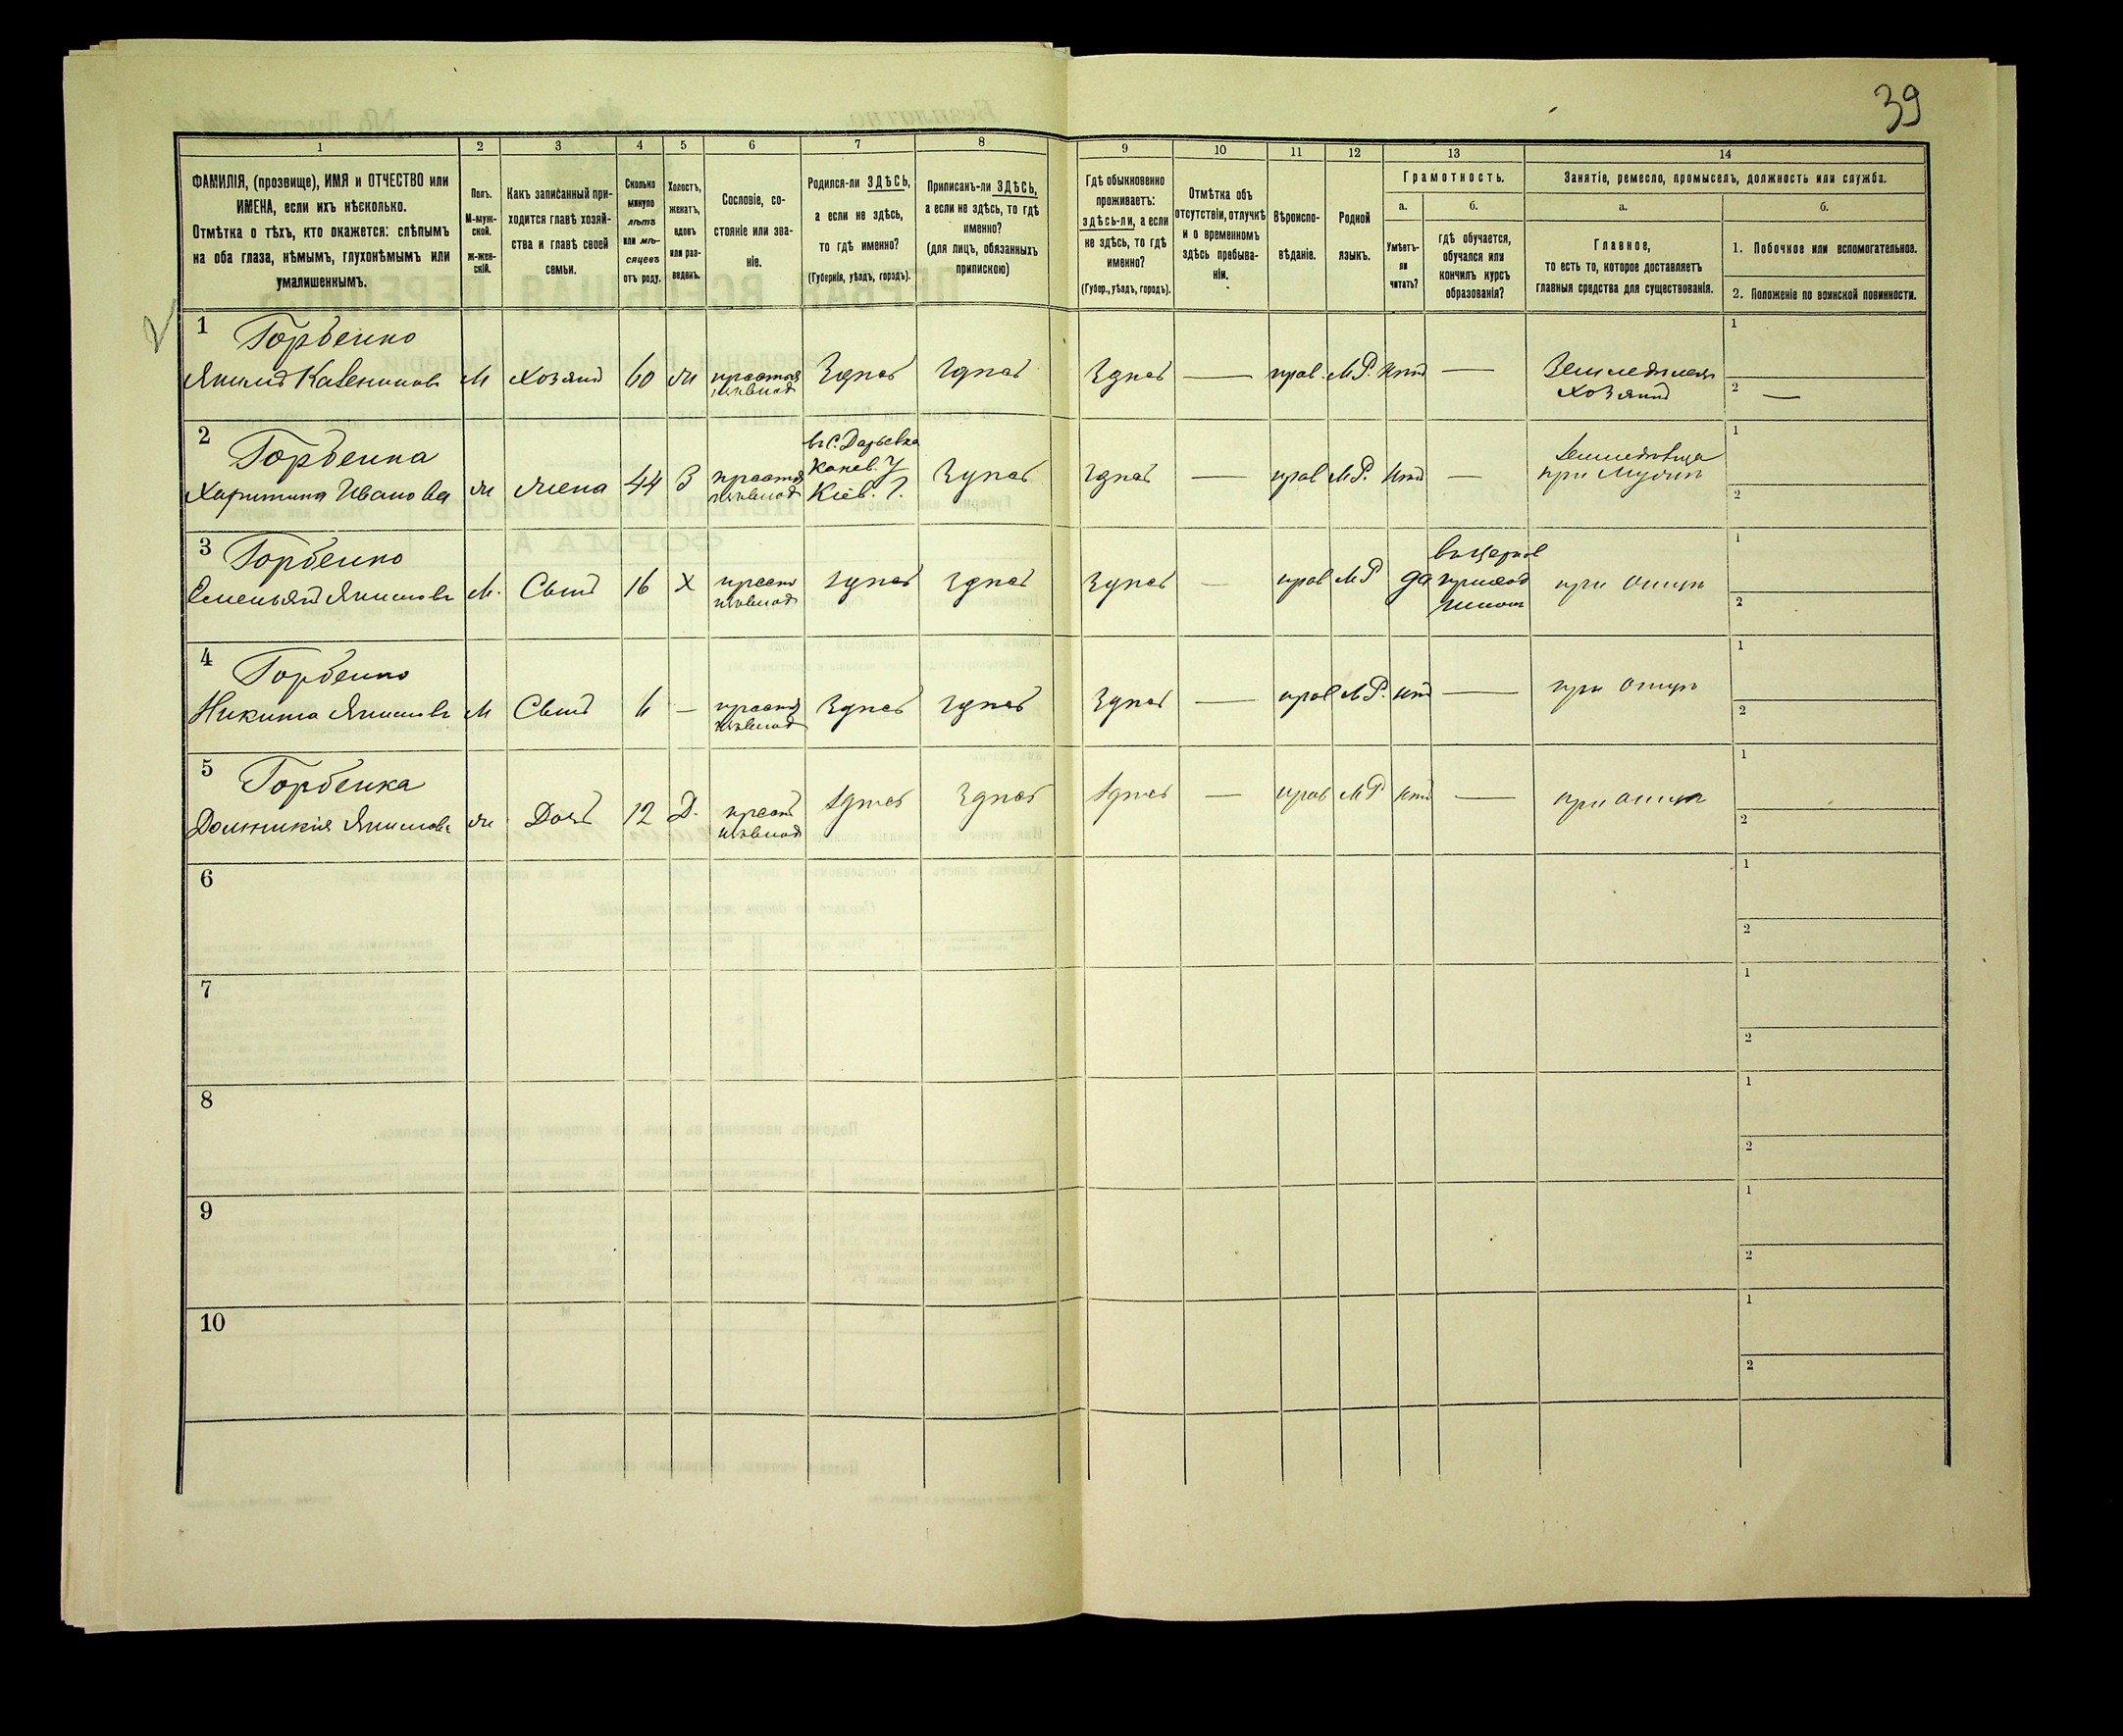 39
1 2 3 4 5 6 7 8 9 10 11 12 13 14
ФАМИЛІЯ, (прозвище), ИМЯ и ОТЧЕСТВО или
ИМЕНА, если ихъ нѣсколько.
Отмѣтка о тѣхъ, кто окажется: слѣпымъ
на оба глаза, нѣмымъ, глухонѣмымъ или
умалишеннымъ.
Полъ.
М-муж-
ской.
ж-жен-
скій.
Какъ записанный при-
ходится главѣ хозяй-
ства и главѣ своей
семьи.
Сколько
минуло
лѣтъ
или мѣ-
сяцевъ
отъ роду.
Холостъ,
женатъ,
вдовъ
или раз-
веденъ.
Сословіе, со-
стояніе или зва-
ніе.
Родился-ли ЗДѢСЬ,
а если не здѣсь,
то гдѣ именно?
(Губернія, уѣздъ, городъ).
Приписанъ-ли ЗДѢСЬ,
а если не здѣсь, то гдѣ
именно?
(для лицъ, обязанныхъ
припискою)
Гдѣ обыкновенно
проживаетъ:
здѣсь-ли, а если
не здѣсь, то гдѣ
именно?
(Губер., уѣздъ, городъ).
Отмѣтка объ
отсутствіи, отлучкѣ
и о временномъ
здѣсь пребыва-
ніи.
Вѣроиспо-
вѣданіе.
Родной
языкъ.
Грамотность.
а.
Умѣетъ-
ли
читать?
б.
гдѣ обучается,
обучался или
кончилъ курсъ
образованія?
Занятіе, ремесло, промыселъ, должность или служба.
а.
Главное,
то есть то, которое доставляетъ
главныя средства для существованія.
б.
1. Побочное или вспомогательное.
2. Положеніе по воинской повинности.
1 Горбенко
Якимъ М Хозяинъ 60 ж Здѣсь Здѣсь Здѣсь — прав. М.Р. нѣтъ — 1
хозяинъ 2 —
2 Горбенка
Харитина Иванова ж жена 44 З Канев. У Здѣсь Здѣсь — прав М.Р. нѣтъ — 1
Кіев. Г. 2
3 Горбенко
Емельянъ Якимовъ М. Сынъ 16 Х Здѣсь Здѣсь Здѣсь — прав М.Р да при отцѣ 1
2
4 Горбенко
Никита Якимовъ М Сынъ — Здѣсь Здѣсь Здѣсь — прав М.Р. нѣтъ — при отцѣ 1
2
5 Горбенка
Якимова ж Дочь 12 Д. Здѣсь Здѣсь Здѣсь — прав М.Р нѣтъ — при отцѣ 1
2
6 1
2
7 1
2
8 1
2
9 1
2
10 1
2